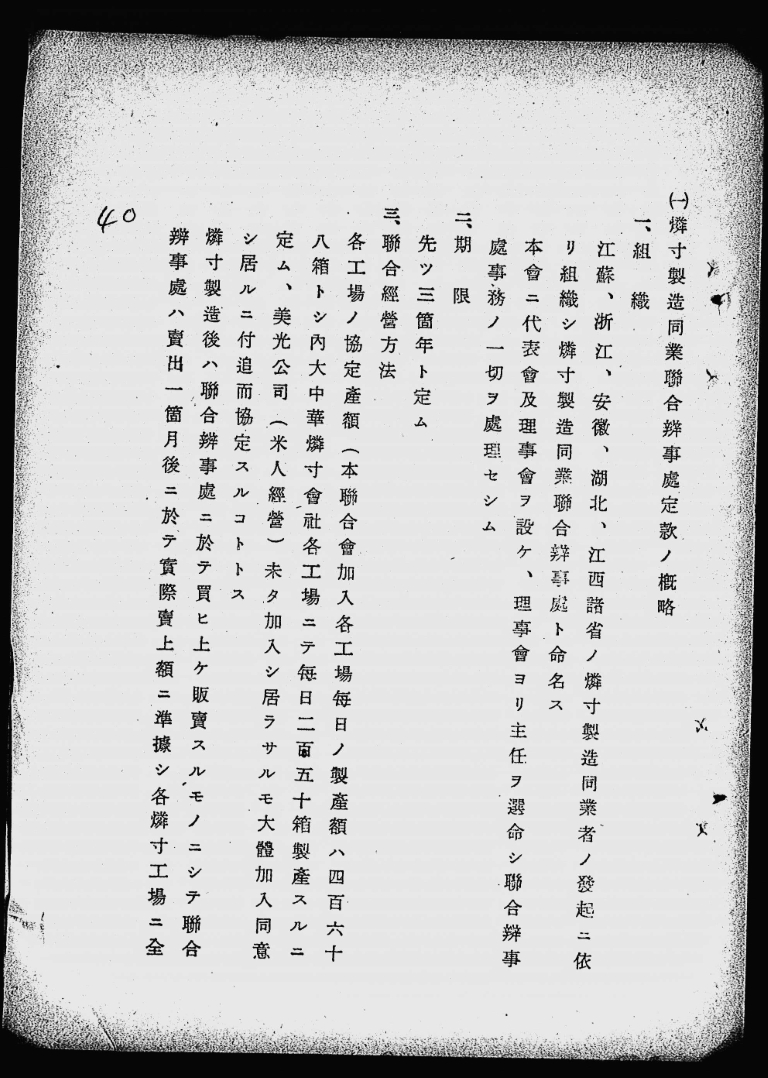 ㈠燐寸製造同業聯合辨事處定款ノ概略
一、組織
江蘇、浙江、安徽、湖北、江西諸省ノ燐寸製造同業者ノ發起ニ依
リ組織シ燐寸製造同業聯合辨事處ト命名ス
本會ニ代表會及理事會ヲ設ケ、理事會ヨリ主任ヲ選命シ聯合辨事
處事務ノ一切ヲ處理セシム
二、期限
先ツ三箇年ト定ム
三、聯合經營方法
各工場ノ協定產額（本聯合會加入各工場每日ノ製產額ハ四百六十
八箱トシ內大中華燐寸會社各工場ニテ每日二百五十箱製產スルニ
定ム、美光公司（米人經營）未タ加入シ居ラサルモ大體加入同意
シ居ルニ付追而協定スルコトトス
燐寸製造後ハ聯合辨事處ニ於テ買ヒ上ケ販賣スルモノニシテ聯合
辨事處ハ賣出一箇月後ニ於テ實際賣上額ニ準據シ各燐寸工場ニ全
40